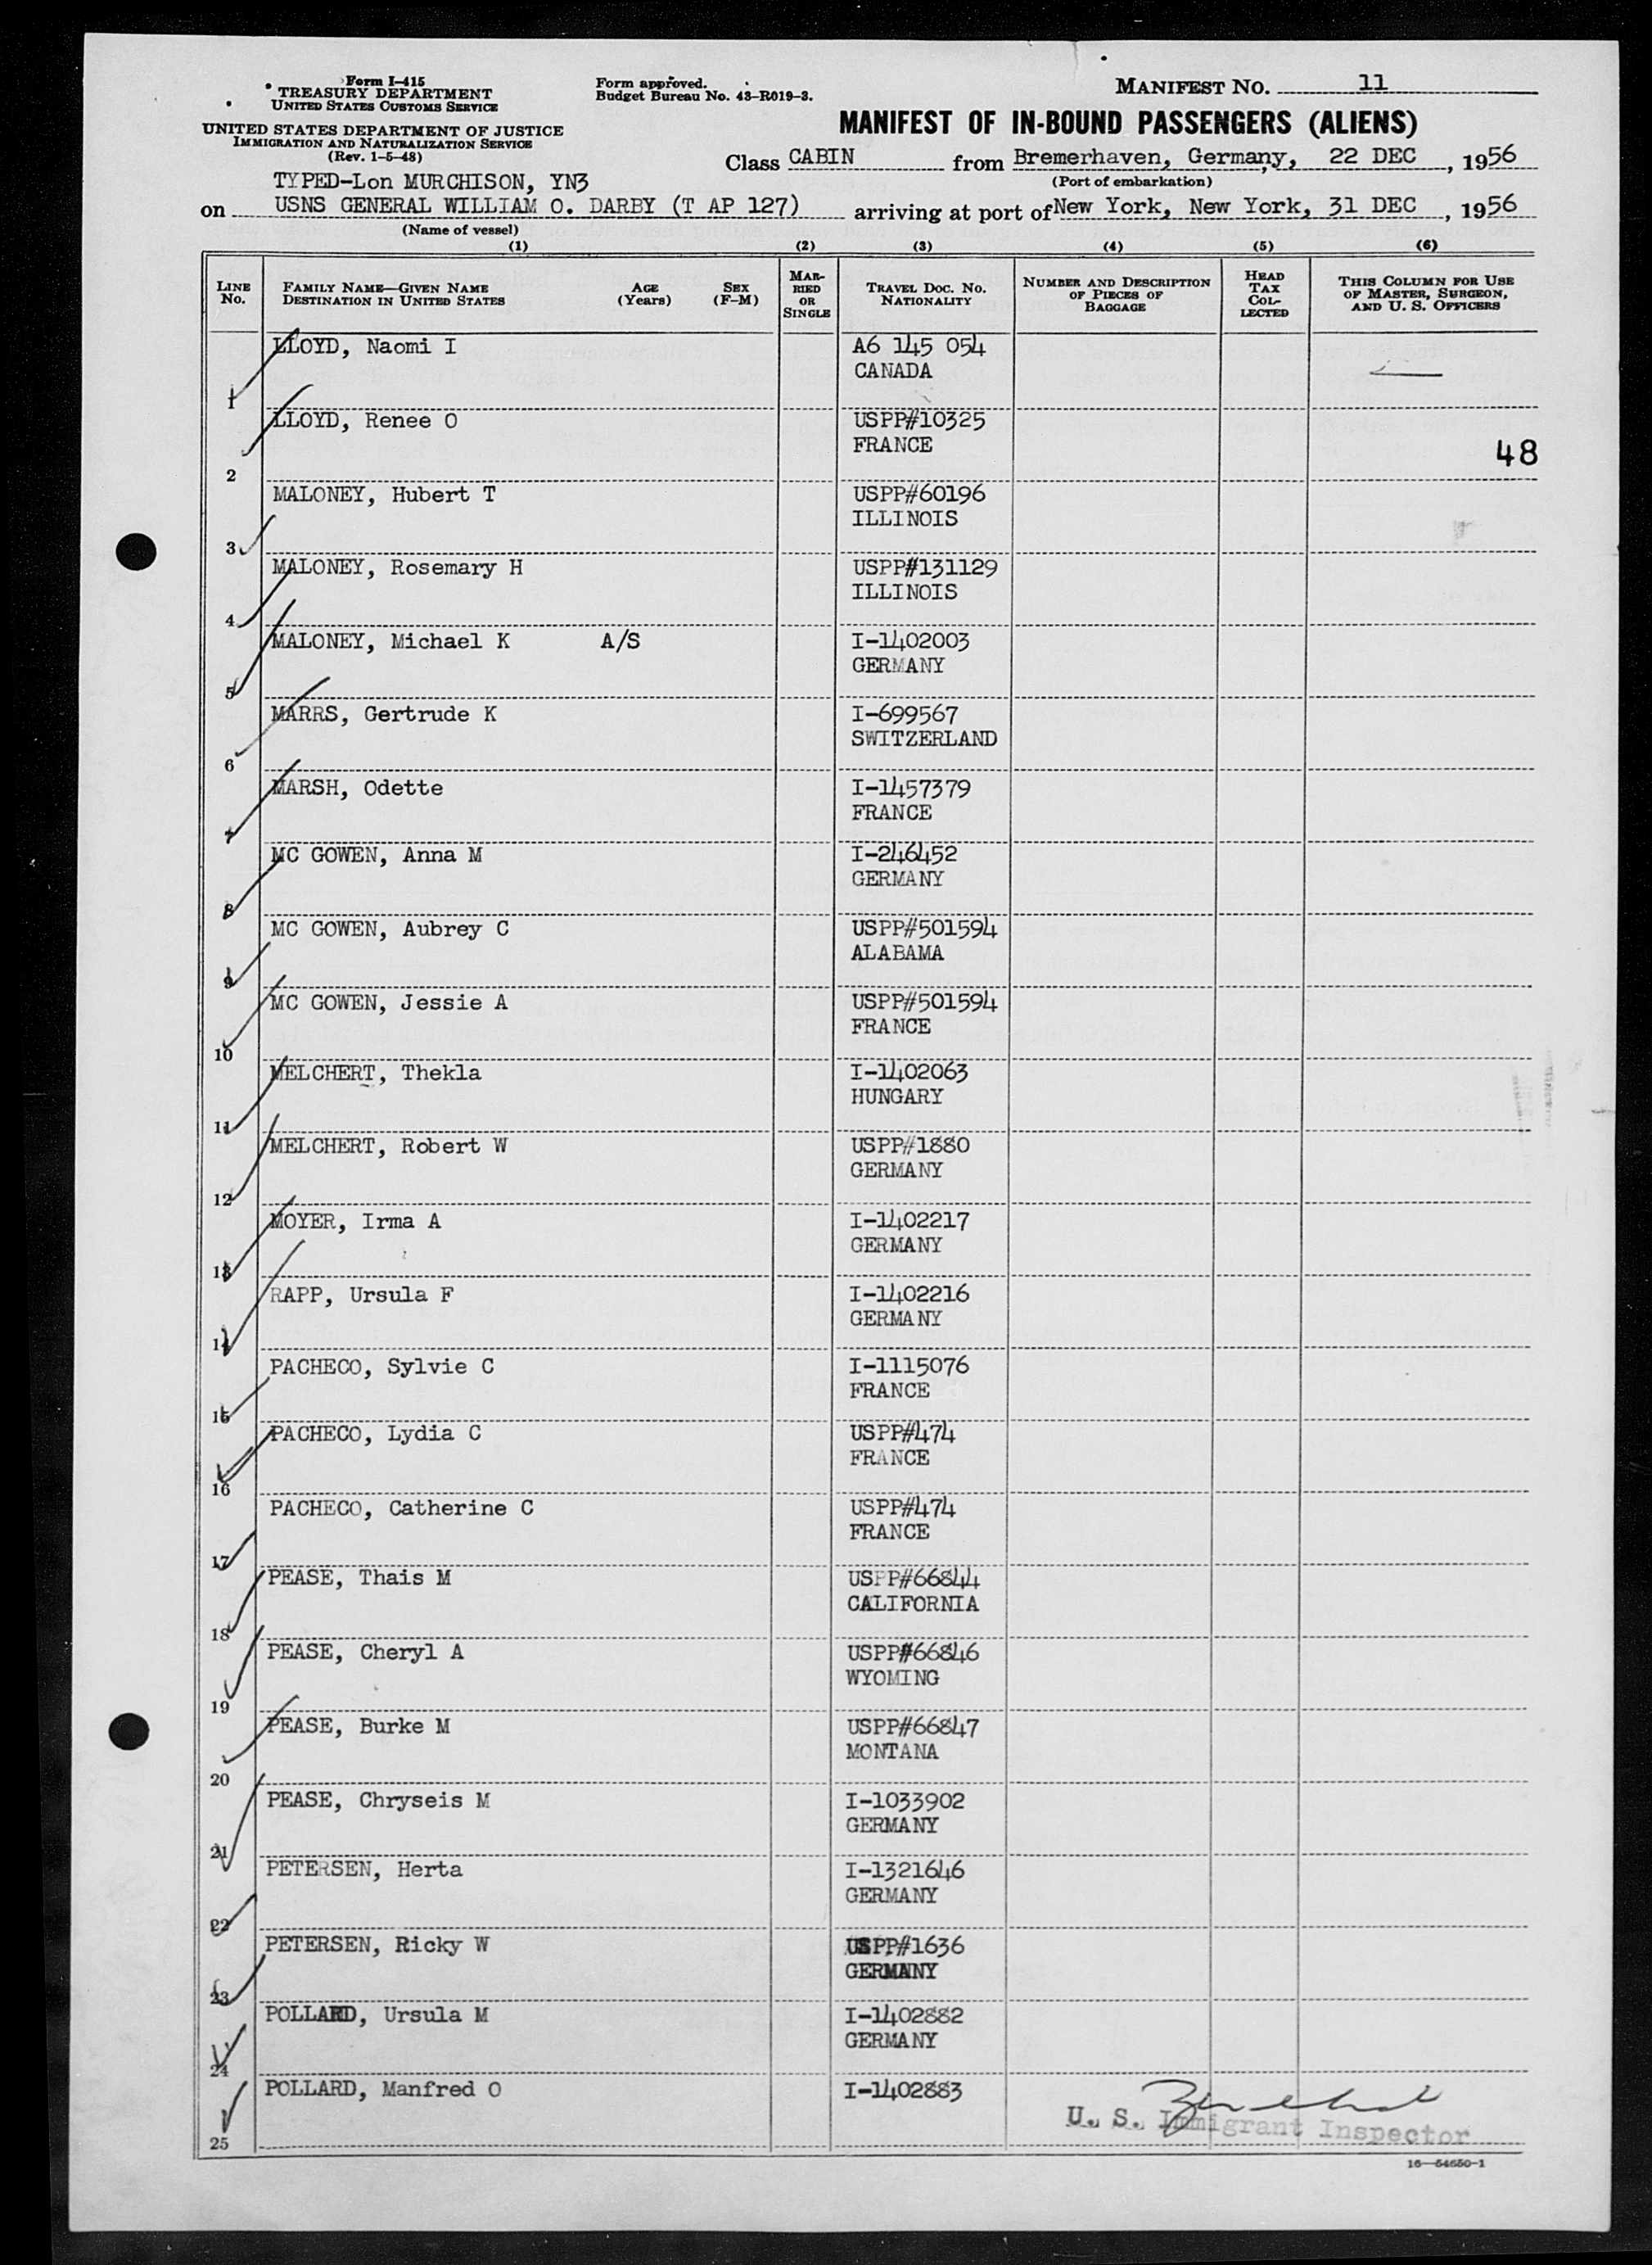 Form I-415
TREASURY DEPARTMENT
UNITED STATES CUSTOMS SERVICE
UNITED STATES DEPARTMENT OF JUSTICE
IMMIGRATION AND NATURALIZATION SERVICE
(Rev. 1-5-48)
Form approved.
Budget Bureau No. 43-R019-3.
MANIFEST NO. 11
MANIFEST OF IN-BOUND PASSENGERS (ALIENS)
Class CABIN from Bremerhaven, Germany, 22 DEC, 1956
(Port of embarkation)
TYPED-Lon MURCHISON, YN3
on USNS GENERAL WILLIAM O. DARBY (T AP 127) arriving at port of New York, New York, 31 DEC, 1956
(Name of vessel)
(1) (2) (3) (4) (5) (6)
LINE No.
FAMILY NAME—GIVEN NAME
DESTINATION IN UNITED STATES
AGE (Years)
SEX (F-M)
MARRIED OR SINGLE
TRAVEL DOC. NO.
NATIONALITY
NUMBER AND DESCRIPTION OF PIECES OF BAGGAGE
HEAD TAX COLLECTED
THIS COLUMN FOR USE OF MASTER, SURGEON, AND U. S. OFFICERS
LLOYD, Naomi I A6 145 054
CANADA
1
LLOYD, Renee O USPP#10325
FRANCE
48
2
MALONEY, Hubert T USPP#60196
ILLINOIS
3
MALONEY, Rosemary H USPP#131129
ILLINOIS
4
MALONEY, Michael K A/S I-1402003
GERMANY
5
MARRS, Gertrude K I-699567
SWITZERLAND
6
MARSH, Odette I-1457379
FRANCE
7
MC GOWEN, Anna M I-246452
GERMANY
8
MC GOWEN, Aubrey C USPP#501594
ALABAMA
9
MC GOWEN, Jessie A USPP#501594
FRANCE
10
MELCHERT, Thekla I-1402063
HUNGARY
11
MELCHERT, Robert W USPP#1880
GERMANY
12
MOYER, Irma A I-1402217
GERMANY
13
RAPP, Ursula F I-1402216
GERMANY
14
PACHECO, Sylvie C I-1115076
FRANCE
15
PACHECO, Lydia C USPP#474
FRANCE
16
PACHECO, Catherine C USPP#474
FRANCE
17
PEASE, Thais M USPP#66844
CALIFORNIA
18
PEASE, Cheryl A USPP#66846
WYOMING
19
PEASE, Burke M USPP#66847
MONTANA
20
PEASE, Chryseis M I-1033902
GERMANY
21
PETERSEN, Herta I-1321646
GERMANY
22
PETERSEN, Ricky W USPP#1636
GERMANY
23
POLLARD, Ursula M I-1402882
GERMANY
24
POLLARD, Manfred O I-1402883
U. S. Immigrant Inspector
25
16—54650-1